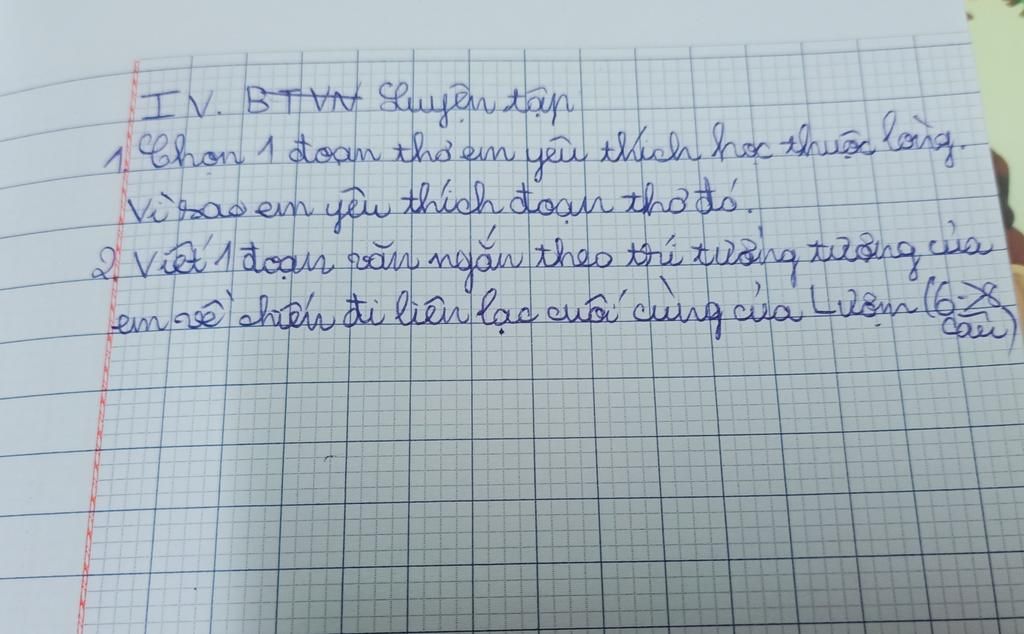 IV. BTVN Luyện tập
1. Chọn 1 đoạn thơ em yêu thích học thuộc lòng.
Vì sao em yêu thích đoạn thơ đó.
2. Viết 1 đoạn văn ngắn theo trí tưởng tượng của
em về chiến đi liên lạc cuối cùng của Lượm (6->8
câu)